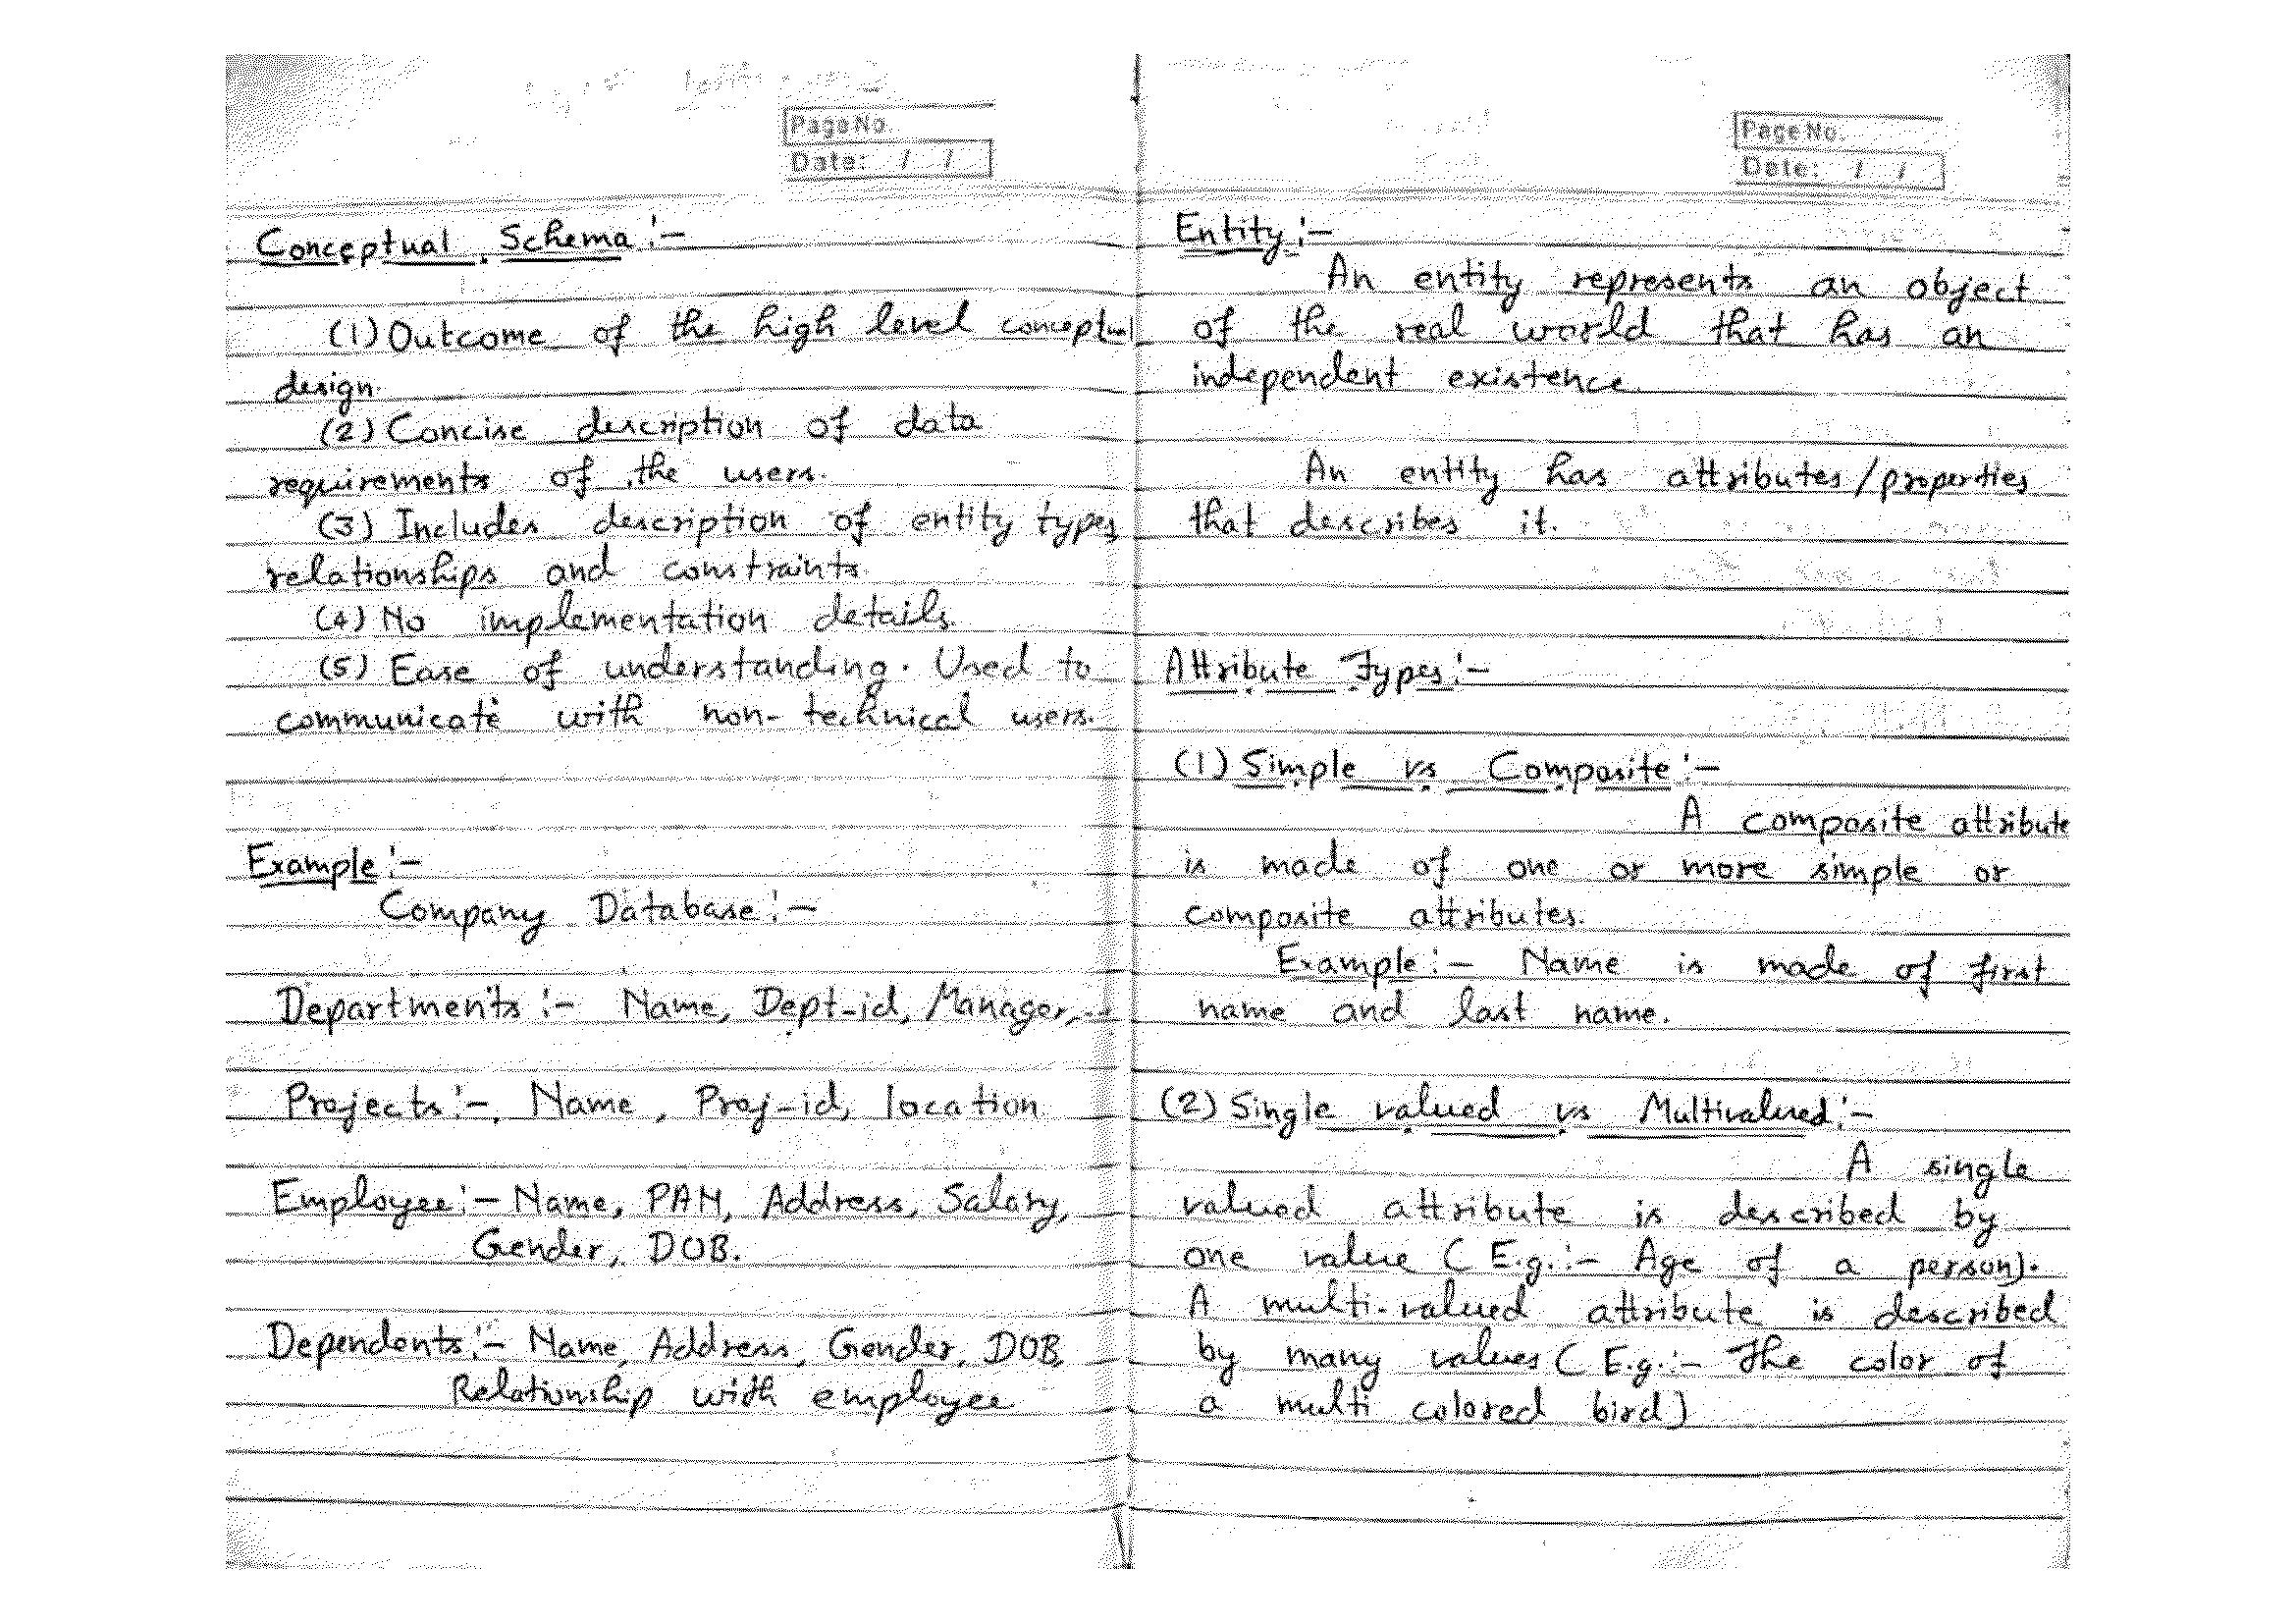 Page No.
Date: / /
Conceptual Schema :-
(1) Outcome of the high level conceptual
design.
(2) Concise description of data
requirements of the users.
(3) Includes description of entity types
relationships and constraints.
(4) No implementation details.
(5) Ease of understanding. Used to
communicate with non-technical users.
Example :-
Company Database :-
Departments :- Name, Dept-id, Manager, --
Projects :- Name, Proj-id, location
Employee :- Name, PAN, Address, Salary,
Gender, DOB.
Dependents :- Name, Address, Gender, DOB,
Relationship with employee
Page No.
Date: / /
Entity :-
An entity represents an object
of the real world that has an
independent existence.
An entity has attributes/properties
that describes it.
Attribute Types :-
(1) Simple vs Composite :-
A composite attribute
is made of one or more simple or
composite attributes.
Example :- Name is made of first
name and last name.
(2) Single valued vs Multivalued :-
A single
valued attribute is described by
one value (E.g. :- Age of a person).
A multi-valued attribute is described
by many values (E.g. :- The color of
a multi colored bird)